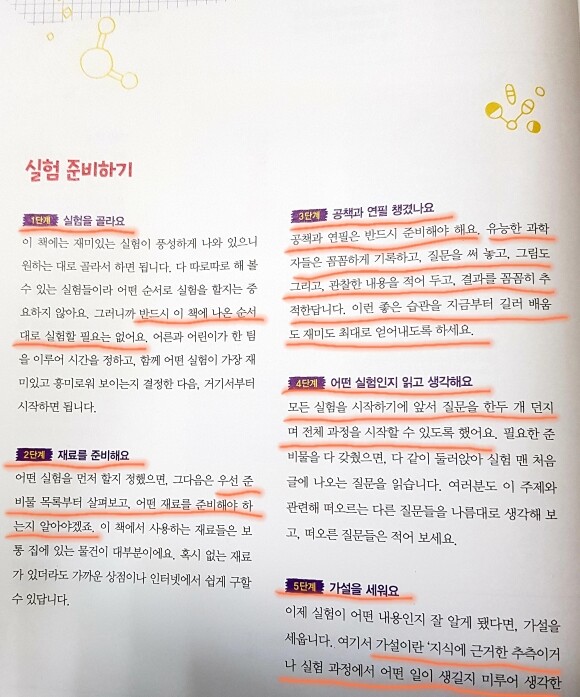 실험 준비하기
1단계 실험을 골라요
이 책에는 재미있는 실험이 풍성하게 나와 있으니
원하는 대로 골라서 하면 됩니다. 다 따로따로 해 볼
수 있는 실험들이라 어떤 순서로 실험을 할지는 중
요하지 않아요. 그러니까 반드시 이 책에 나온 순서
대로 실험할 필요는 없어요. 어른과 어린이가 한 팀
을 이루어 시간을 정하고, 함께 어떤 실험이 가장 재
미있고 흥미로워 보이는지 결정한 다음, 거기서부터
시작하면 됩니다.
2단계 재료를 준비해요
어떤 실험을 먼저 할지 정했으면, 그다음은 우선 준
비물 목록부터 살펴보고, 어떤 재료를 준비해야 하
는지 알아야겠죠. 이 책에서 사용하는 재료들은 보
통 집에 있는 물건이 대부분이에요. 혹시 없는 재료
가 있더라도 가까운 상점이나 인터넷에서 쉽게 구할
수 있답니다.
3단계 공책과 연필 챙겼나요
공책과 연필은 반드시 준비해야 해요. 유능한 과학
자들은 꼼꼼하게 기록하고, 질문을 써 놓고, 그림도
그리고, 관찰한 내용을 적어 두고, 결과를 꼼꼼히 추
적한답니다. 이런 좋은 습관을 지금부터 길러 배움
도 재미도 최대로 얻어내도록 하세요.
4단계 어떤 실험인지 읽고 생각해요
모든 실험을 시작하기에 앞서 질문을 한두 개 던지
며 전체 과정을 시작할 수 있도록 했어요. 필요한 준
비물을 다 갖췄으면, 다 같이 둘러앉아 실험 맨 처음
글에 나오는 질문을 읽습니다. 여러분도 이 주제와
관련해 떠오르는 다른 질문들을 나름대로 생각해 보
고, 떠오른 질문들은 적어 보세요.
5단계 가설을 세워요
이제 실험이 어떤 내용인지 잘 알게 됐다면, 가설을
세웁니다. 여기서 가설이란 ‘지식에 근거한 추측이거
나 실험 과정에서 어떤 일이 생길지 미루어 생각한